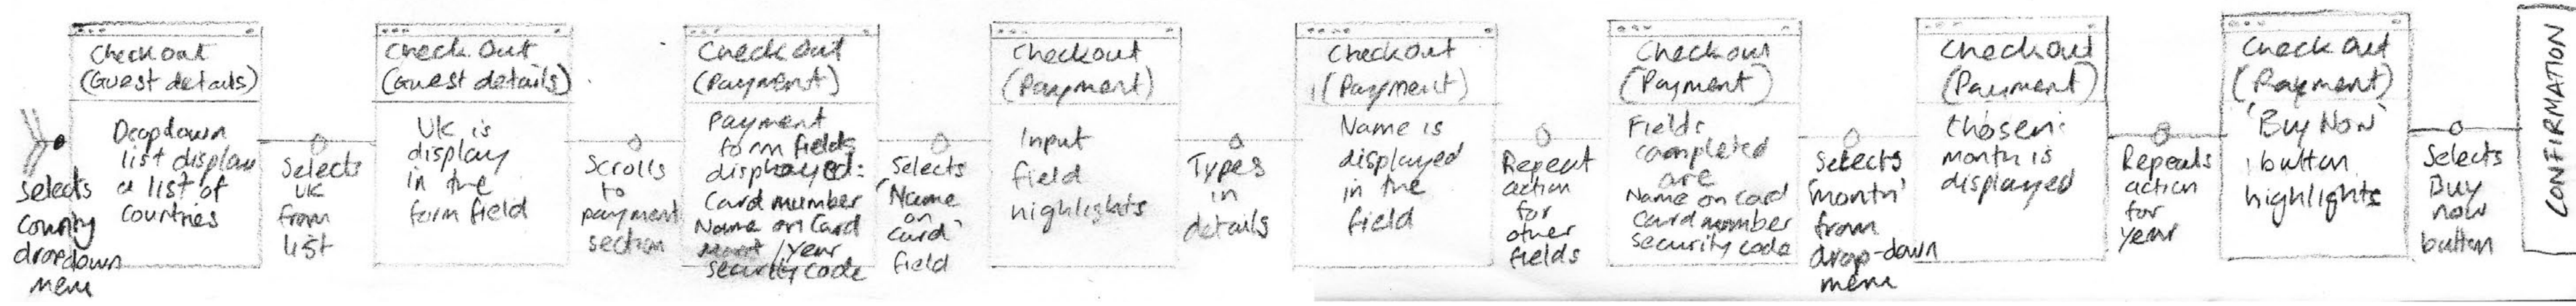 selects
country
dropdown
menu
Checkout
(Guest details)
Dropdown
list display
a list of
countries
Selects
UK
from
list
Check Out
(Guest details)
UK is
display
in the
form field
Scrolls
to
payment
section
Check Out
(Payment)
Payment
form fields
displayed:
Card number
Name on Card
/Year
security code
Selects
'Name
on
card'
field
Checkout
(Payment)
Input
field
highlights
Types
in
details
Checkout
(Payment)
Name is
displayed
in the
field
Repeat
action
for
other
fields
Checkout
(Payment)
Fields
completed
are
Name on Card
Card number
Security code
Selects
'month'
from
drop-down
menu
Checkout
(Payment)
Chosen
month is
displayed
Repeats
action
for
year
Check Out
(Payment)
'Buy Now'
button
highlights
Selects
Buy
now
button
CONFIRMATION